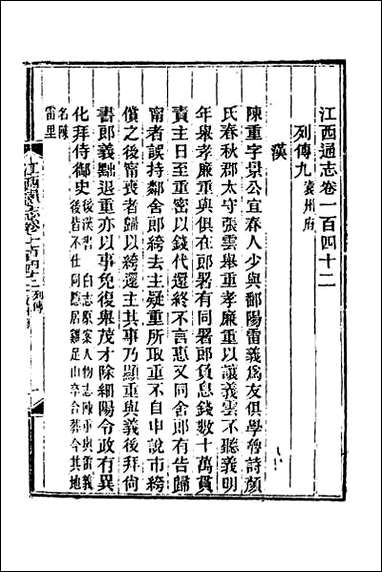 江西通志卷一百四十二
列傳九袁州府
漢
陳重字景公宜春人少與鄱陽雷義爲友俱學魯詩顏
氏春秋郡太守張雲舉重孝廉重以讓義雲不聽義明
年舉孝廉重與俱在郎署有同署郎負息錢數十萬責
責主日至重密以錢代還終不言惠又同舍郎有告歸
甯者誤持鄰舍郎絝去主疑重所取重不自申說市絝
償之後甯喪者歸以絝還主其事乃顯重與義後拜尚
書郎義黜退重亦以事免復舉茂才除細陽令政有異
化拜侍御史後漢書 白志原案人物志陳重與雷義
後皆不仕阿隱居
山卒合葬今其地
名陳
雷里